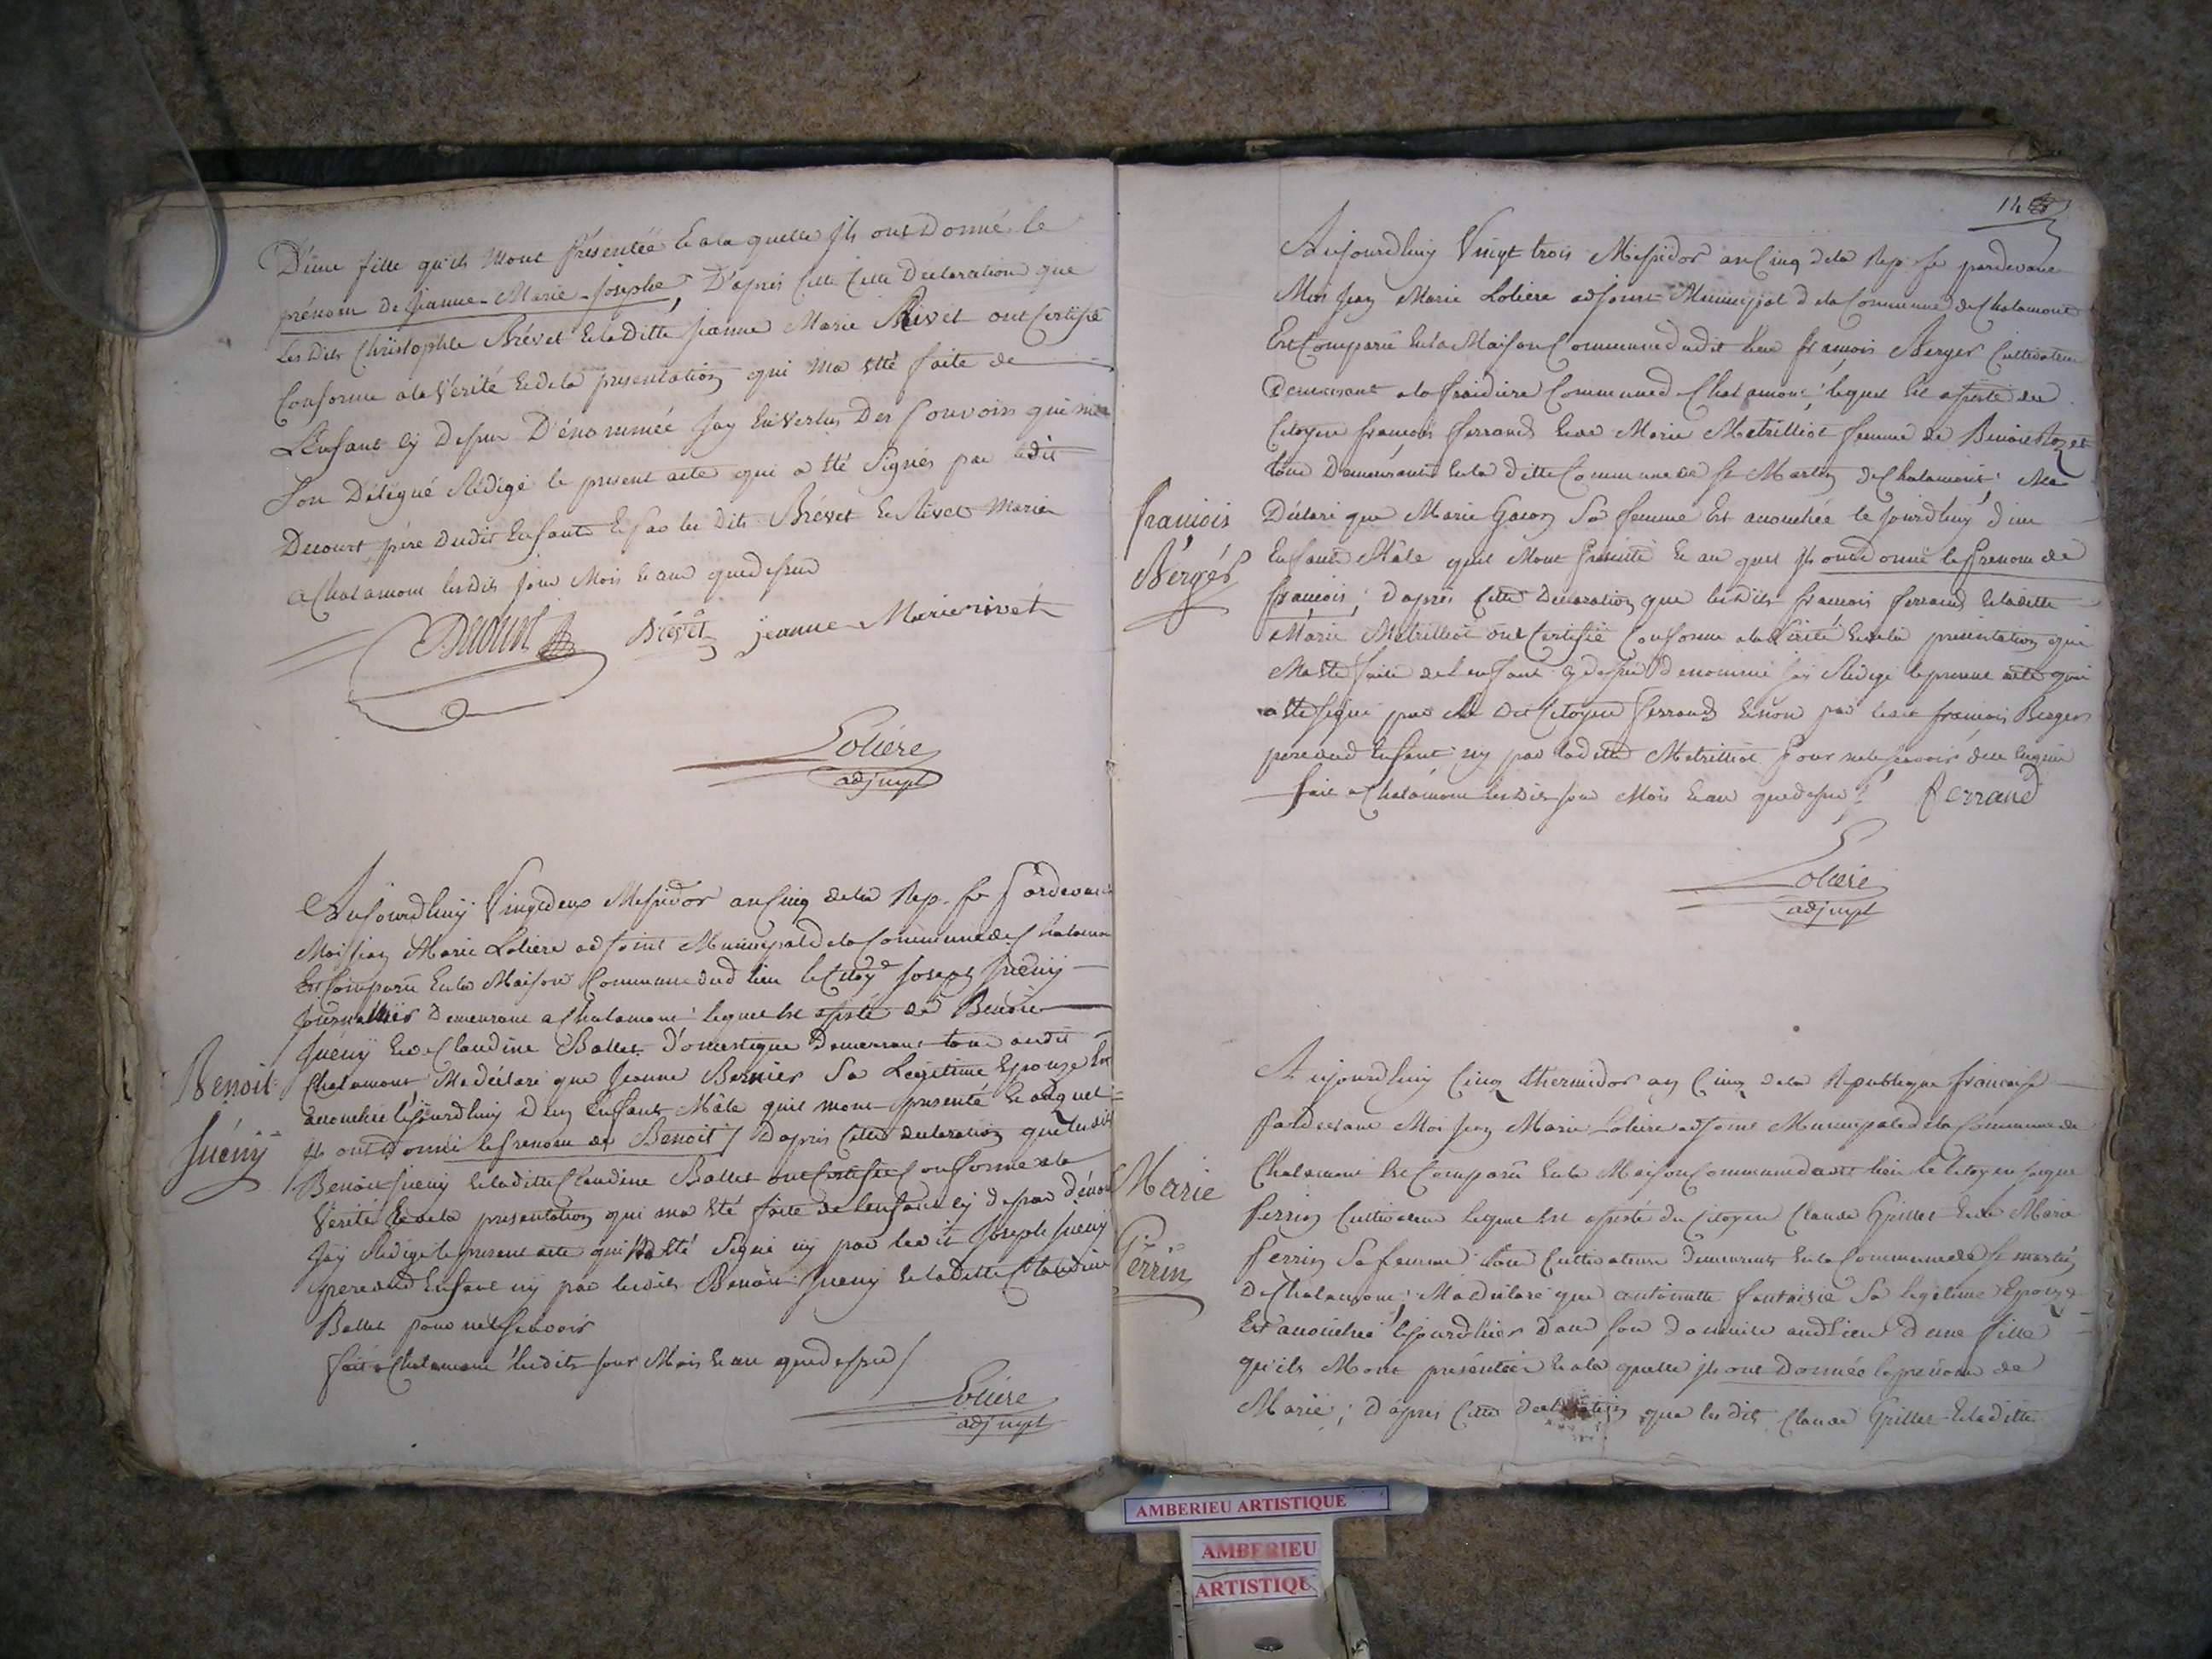 D'une fille qu'ils Mont présentée Et a la quelle Ils ont Donné le
prénom de Jeanne-Marie-Josephe, D'après Cette Cette Declaration que
Les Dits Christophle Brévet Et la Ditte Jeanne Marie Rivet ont Certifié
Conforme a la Vérité Et de la presentation qui Ma Etté faite de
L'Enfant Cy Dessus Dénommée Jay En Vertus Des Pouvoirs qui me
Son Délégué Rédigé le present acte qui a Eté Signés par Ledit
Decourt père Dudit Enfant Et Par les Dits Brévet Et Rivet Marie
a Chalamont les Dits jour Mois Et an que dessus
Decourt Brévet jeanne Marie rivet
Loliére
adj mpl
Aujourdhuy Vingt deux Messidor an Cinq de la Rep. fe Pardevant
Moi Jean Marie Loliere adjoint Municipal de la Commune de Chalamo
Est Comparu En la Maison Commune dud lieu le Citoyen Joseph Juény
Journallier Demeurant a Chalamont lequel Est assisté de Benoit
Juény Et de Claudine Ballet Domestique Demeurant tous audit
Benoit
Juény
Chalamont Ma déclaré que Jeanne Bernier Sa Légitime Epouze Est
accouchée lejourdhuy d'un Enfant Mâle quil mont presenté Et auquel
Ils ont Donné le Prenom de Benoit / D'apres Cette declaration que lesdits
Benoit Juény Et la ditte Claudine Ballet ont Certifié Conforme a la
Verité Et de la presentation qui ma Eté faite de lenfant Cy dessus dénom
Jay Rédigé le present acte qui Na Eté Signé ny par ledit Joseph Juény
pere dud Enfant ny par lesdits Benoit Juény Et la ditte Claudine
Ballet pour ne le Scavoir
fait a Chalamont lesdits jour Mois Et an que dessus /
Loliére
adj mpl
14
Aujourdhuy Vingt trois Messidor an Cinq de la Rep. fe pardevant
Moi Jean Marie Loliere adjoint Municipal de la Commune de Chalamont
Est Comparu En la Maison Commune dudit lieu françois Berger Cultivateur
Demeurant a la fraidiere Commune de Chalamont, lequel Est assisté du
Citoyen françois ferrand Et de Marie Metrilliot femme de Benoit Rozet
tous Demeurants En la ditte Commune de St Martin de Chalamont, Ma
françois
Bérgér
Déclaré que Marie Gacon Sa femme Est accouchée le jourdhuy d'un
Enfant Mâle quil Mont Presenté Et au quel Ils ont donné le Prenom de
françois; d'après Cette Declaration que lesdits françois ferrand Et laditte
Marie Metrilliot ont Certifié Conforme a la Vérité Et de la presentation qui
Ma Eté faite de l'enfant Cy dessus denommé Jay Rédigé le present acte qui
a Eté Signé par le Dit Citoyen ferrand Et non par ledit françois Berger
pere dud Enfant ny par laditte Metrilliot Pour ne le Scavoir de ce Enquis
fait a Chalamont lesdits jour Mois Et an que dessus / ferrand
Loliére
adj mpl
Aujourdhuy Cinq thermidor an Cinq de la Republique francaise
Pardevant Moi Jean Marie Loliere adjoint Municipal de la Commune de
Marie
Perrin
Chalamont Est Comparû En la Maison Commune dudit lieu le Citoyen
Perrin Cultivateur lequel Est assisté du Citoyen Claude Grillet Et de Marie
Perrin Sa femme tous Cultivateurs Demeurants En la Commune de St martin
De Chalamont, Ma déclaré que antoinette fantaisie Sa legitime Epouze
Est accouchée lejourdhier dans Son domicile aud Lieu d'une fille
qu'ils Mont présentée Et a la quelle Ils ont Donnée le prénom de
Marie; d'après Cette declaration que les dits Claude Grillet Et la ditte
AMBERIEU ARTISTIQUE
AMBERIEU
ARTISTIQU